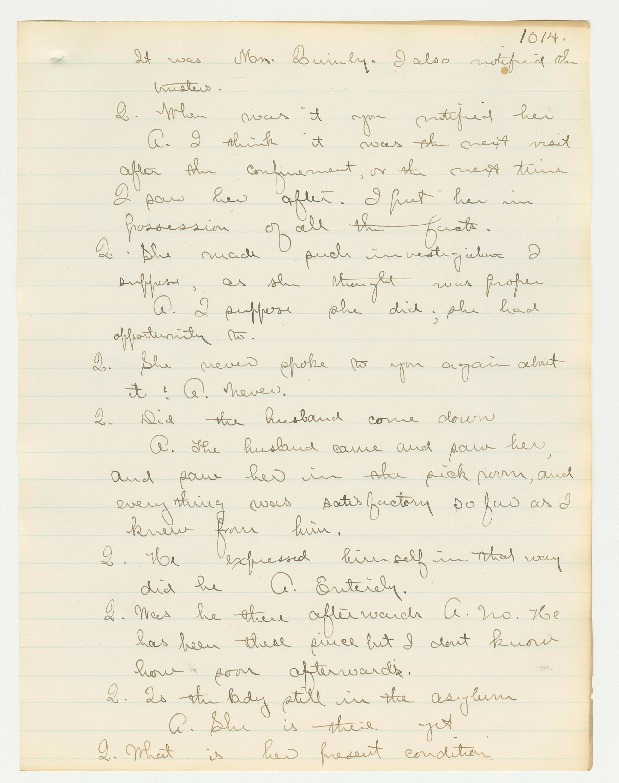 1014.
It was Mrs. Burnby. I also notified the
trustees.
Q. When was it you notified her
A. I think it was the next visit
after the confinement, or the next time
I saw her after. I put her in
possession of all the facts.
Q. She made such investigation I
suppose, as she thought was proper
A. I suppose she did; she had
opportunity to.
Q. She never spoke to you again about
it? A. Never.
Q. Did the husband come down
A. The husband came and saw her,
and saw her in the sick room, and
everything was satisfactory so far as I
knew from him.
Q. He expressed himself in that way
did he A. Entirely.
Q. Was he there afterwards A. No. He
has been there since but I dont know
how soon afterwards.
Q. Is the lady still in the asylum
A. She is there yet
Q. What is her present condition